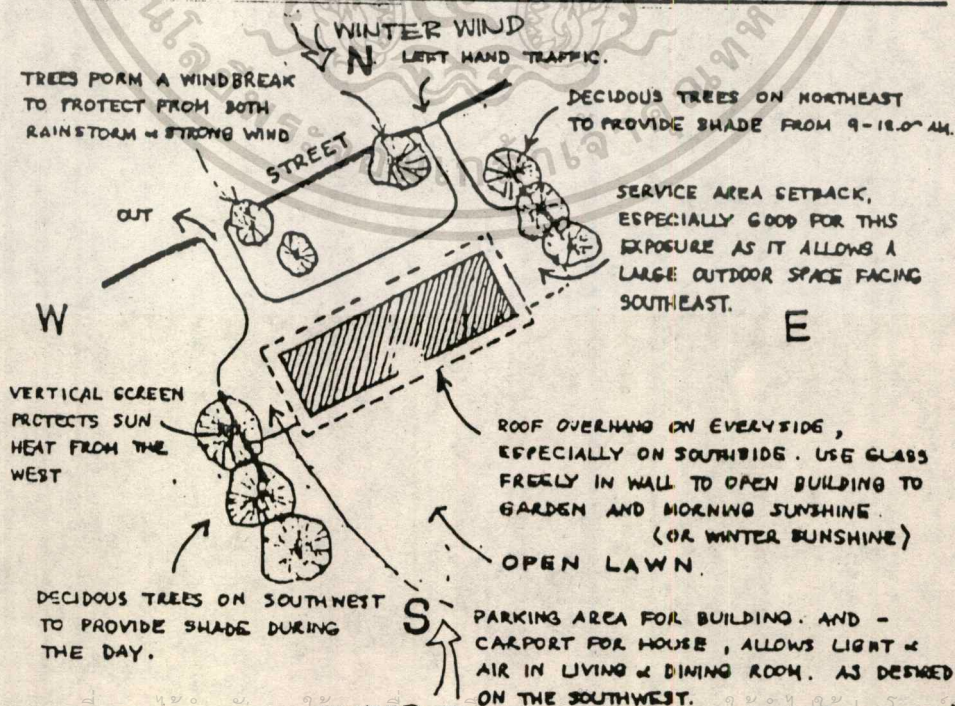 WINTER WIND
N
LEFT HAND TRAFFIC.
TREES FORM A WINDBREAK
TO PROTECT FROM BOTH
RAINSTORM & STRONG WIND
DECIDOUS TREES ON NORTHEAST
TO PROVIDE SHADE FROM 9-12.00 AM.
STREET
OUT
SERVICE AREA SETBACK,
ESPECIALLY GOOD FOR THIS
EXPOSURE AS IT ALLOWS A
LARGE OUTDOOR SPACE FACING
SOUTHEAST.
W
E
VERTICAL SCREEN
PROTECTS SUN
HEAT FROM THE
WEST
ROOF OVERHANG ON EVERYSIDE,
ESPECIALLY ON SOUTHSIDE. USE GLASS
FREELY IN WALL TO OPEN BUILDING TO
GARDEN AND MORNING SUNSHINE.
(OR WINTER SUNSHINE)
OPEN LAWN.
DECIDOUS TREES ON SOUTHWEST
TO PROVIDE SHADE DURING
THE DAY.
S
PARKING AREA FOR BUILDING. AND -
CARPORT FOR HOUSE, ALLOWS LIGHT &
AIR IN LIVING & DINING ROOM. AS DESIRED
ON THE SOUTHWEST.